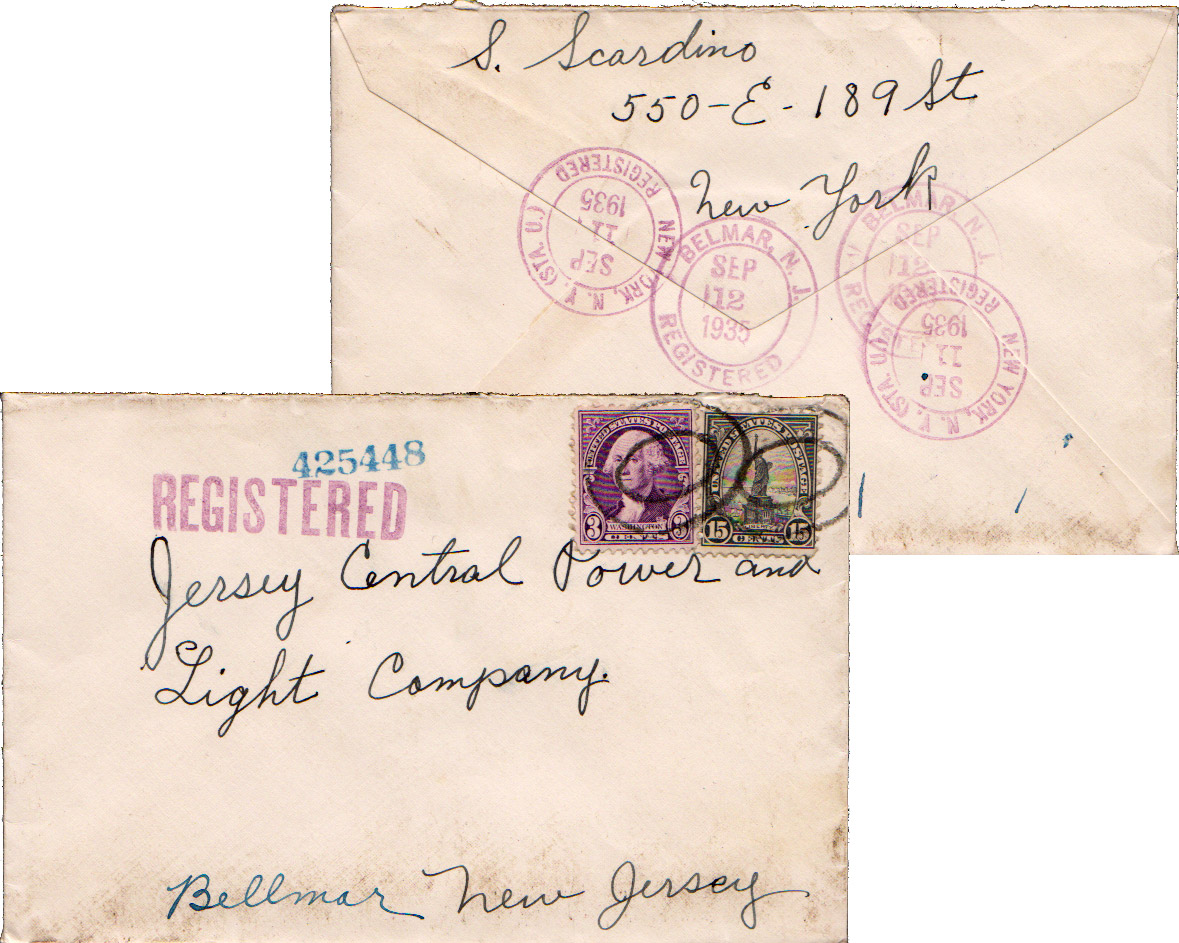 S. Scardino
550-E-189 St
New York
REGISTERED
NEW YORK, N.Y. (STA. U.)
SEP
11
1935
BELMAR, N. J.
SEP
12
1935
REGISTERED
BELMAR, N. J.
SEP
12
REGISTERED
NEW YORK, N.Y. (STA. U.)
SEP
11
1935
425448
REGISTERED
UNITED STATES POSTAGE
3 WASHINGTON 3
CENTS
UNITED STATES POSTAGE
15 15
CENTS
Jersey Central Power and
Light Company.
Bellmar New Jersey